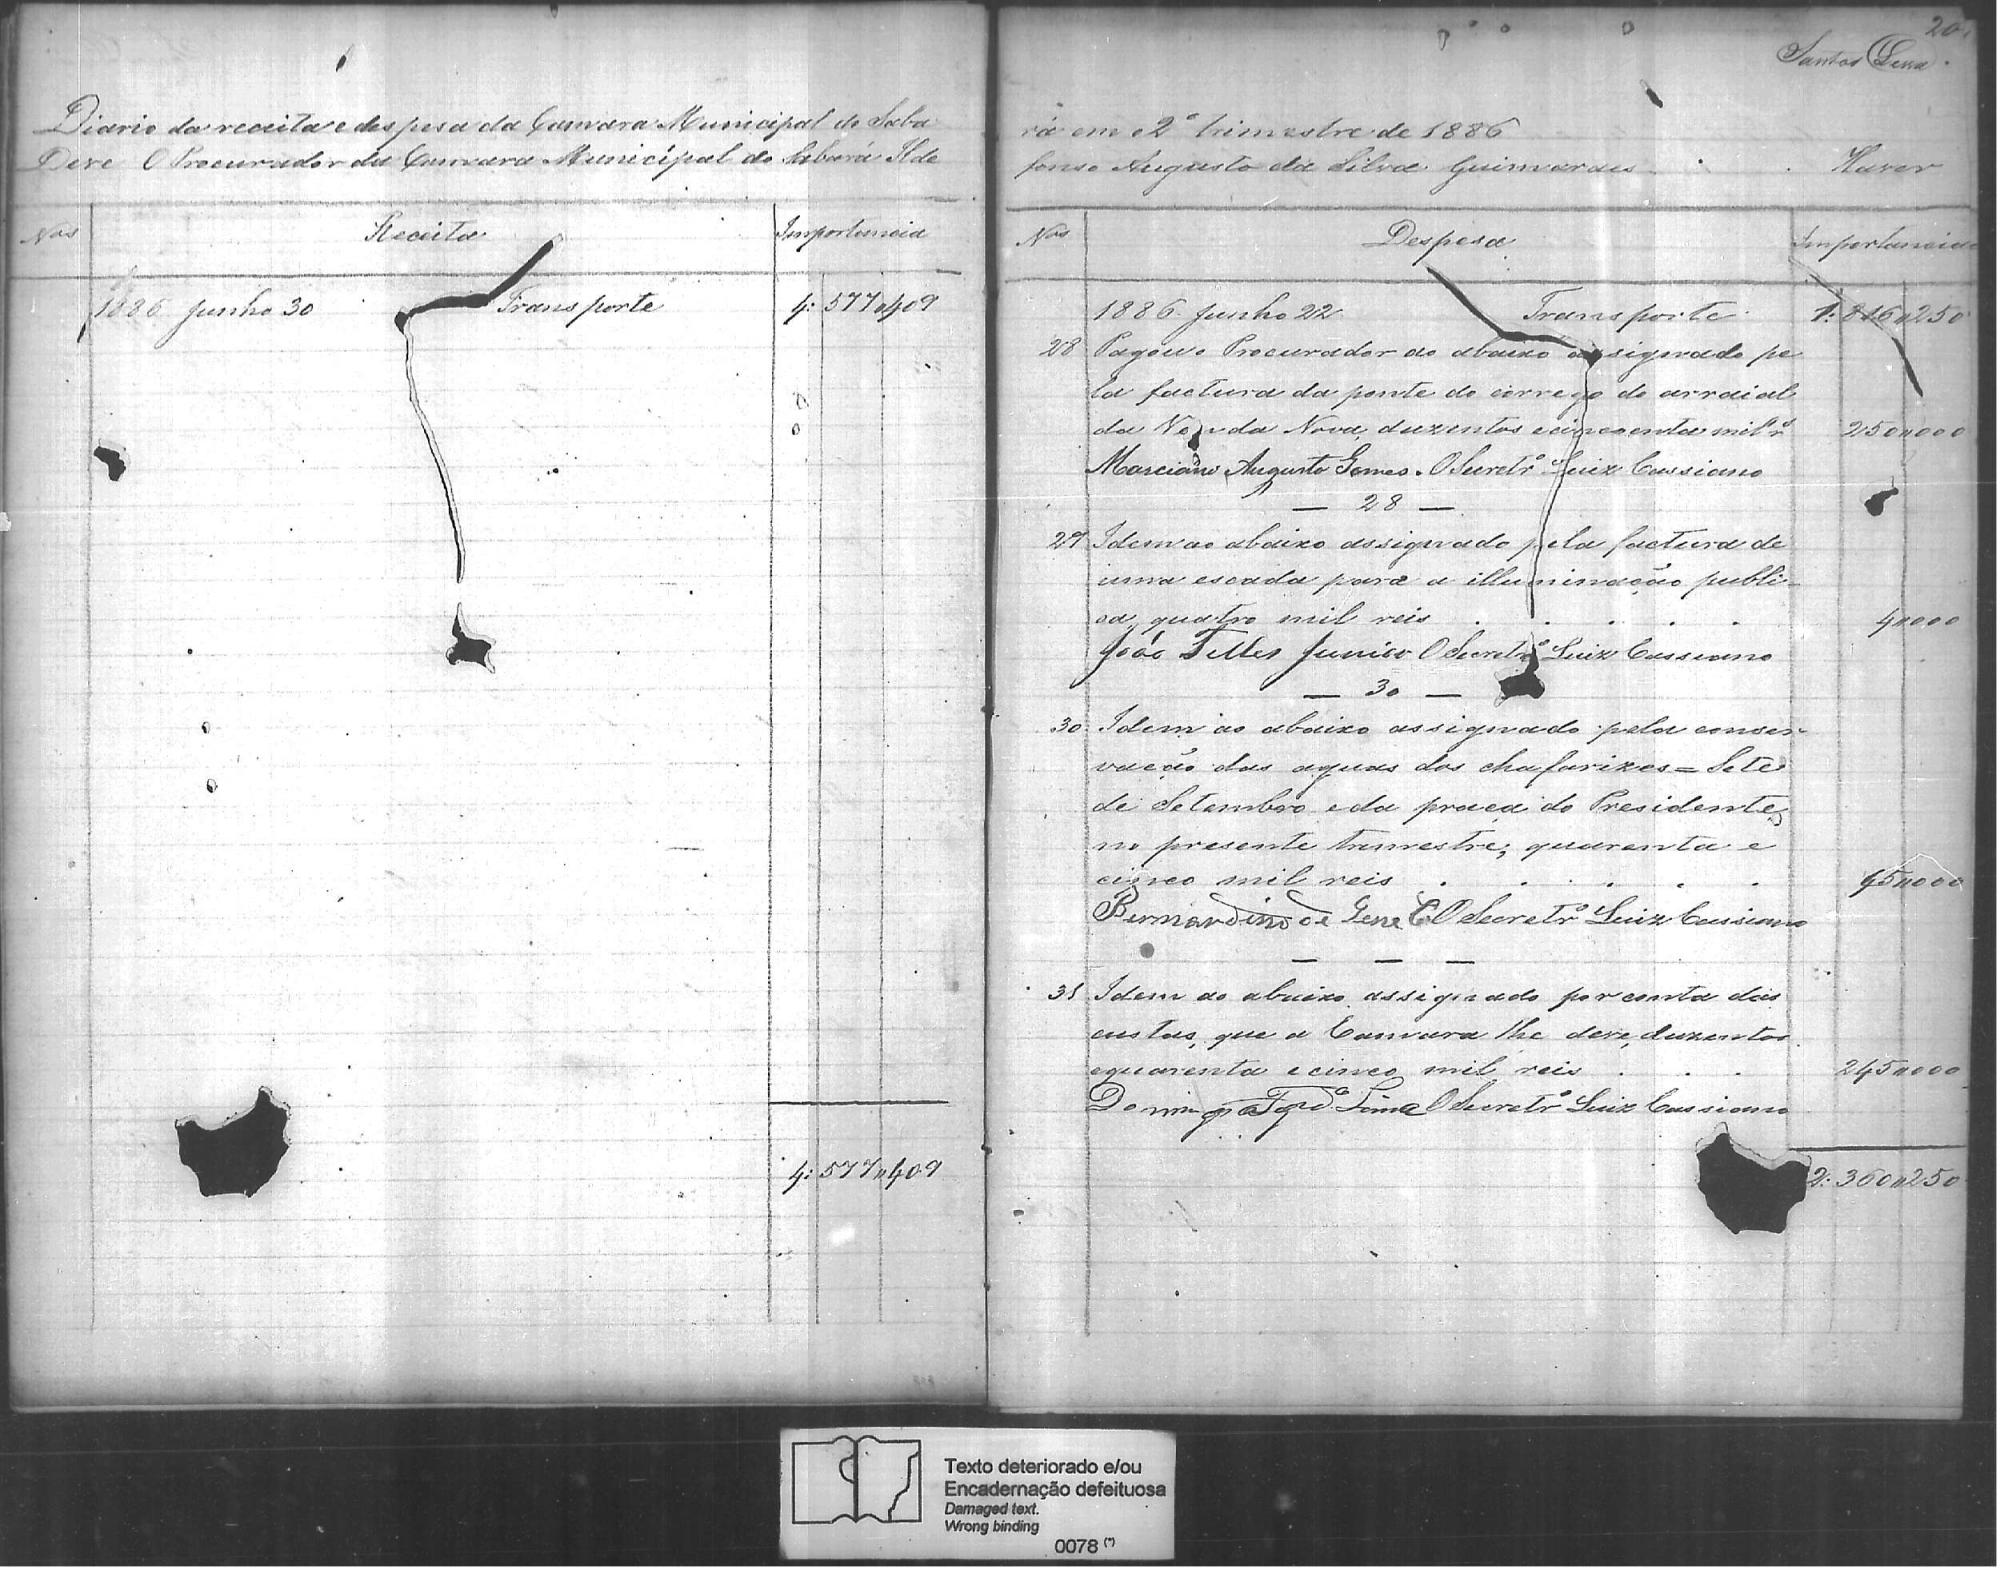 Diario da receita e despesa da Camara Municipal de Saba
Deve O Procurador da Camara Municipal de Sabará Ilde
Nos Receita Importancia
1886 Junho 30 Transporte 4:577"409
4:577"409
20.
Santos Lima.
rá em o 2º trimestre de 1886
fonso Augusto da Silva Guimarães Haver
Nos Despesa Importancia
1886 Junho 22 Transporte 1:816"250
28 Pagou o Procurador ao abaixo assignado pe
la factura da ponte do corrego do arraial
da Venda Nova, duzentos e cincoenta mil rs 250"000
Marciano Augusto Gomes. O Secretrº Luiz Cassiano
— 28 —
29 Idem ao abaixo assignado pela factura de
uma escada para a illuminação publi-
ca, quatro mil reis . . . . . 4"000
João Telles Junior O Secretrº Luiz Cassiano
— 30 —
30 Idem ao abaixo assignado pela conser-
vação das aguas dos chafarizes = Sete
de Setembro e da praça do Presidente,
no presente trimestre, quarenta e
cinco mil reis . . . . . 45"000
Bernardino de O Secretrº Luiz Cassiano
— — —
31 Idem ao abaixo assignado por conta das
custas, que a Camara lhe deve, duzentos
e quarenta e cinco mil reis . . . 245"000
Lima O Secretrº Luiz Cassiano
2:360"250
Texto deteriorado e/ou
Encadernação defeituosa
Damaged text.
Wrong binding
0078 (*)